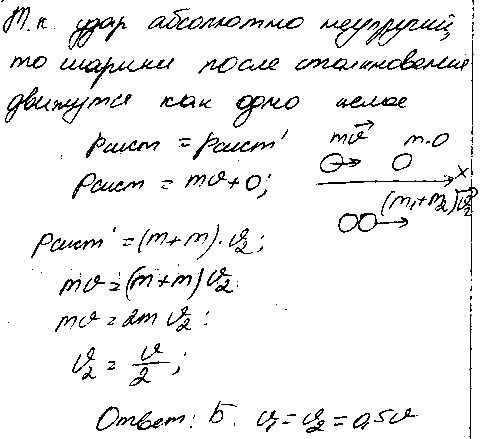 Т.к. удар абсолютно неупругий,
то шарики после столкновения
движутся как одно целое
Pсист = Pсист'
Pсист = mυ+0;
mυ⃗ m·0
X
(m₁+m₂)υ⃗₂
Pсист' = (m+m)·υ₂;
mυ = (m+m)υ₂
mυ = 2m υ₂:
υ₂ = υ/2;
Ответ: Б. υ₁ = υ₂ = 0,5υ